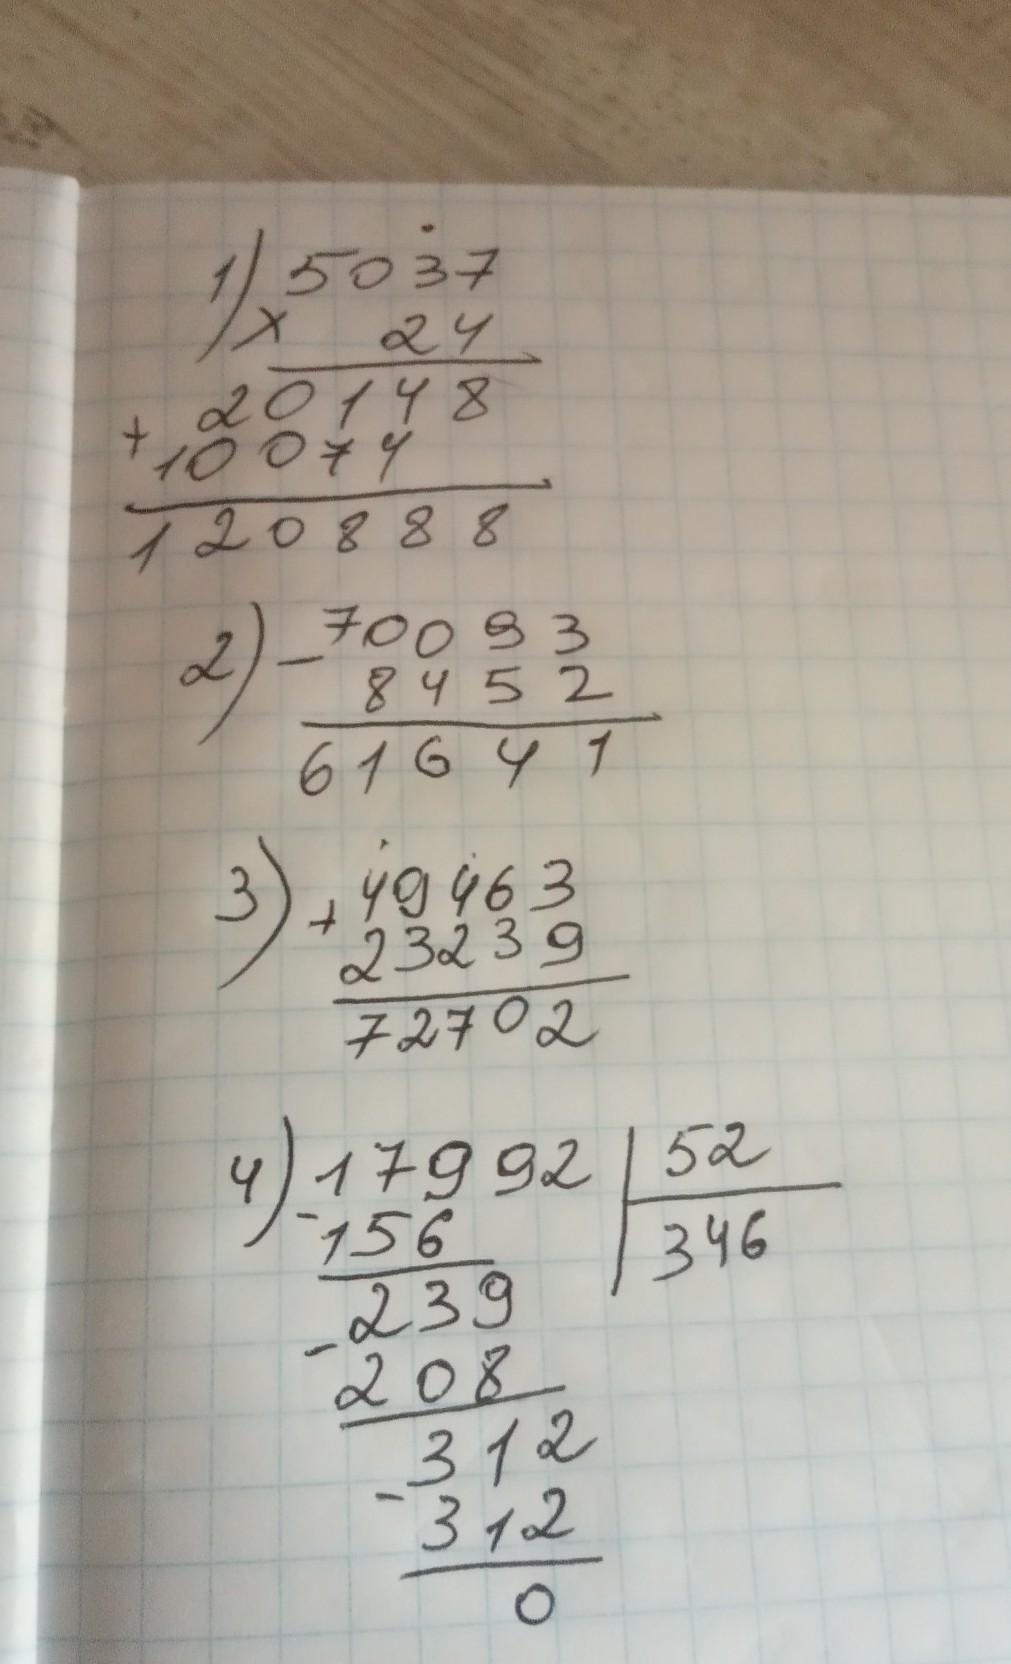 1) 5037
× 24
20148
+ 10074
120888
2) - 70093
8452
61641
3) + 49463
23239
72702
4) 17992 | 52
- 156 346
239
- 208
312
- 312
0